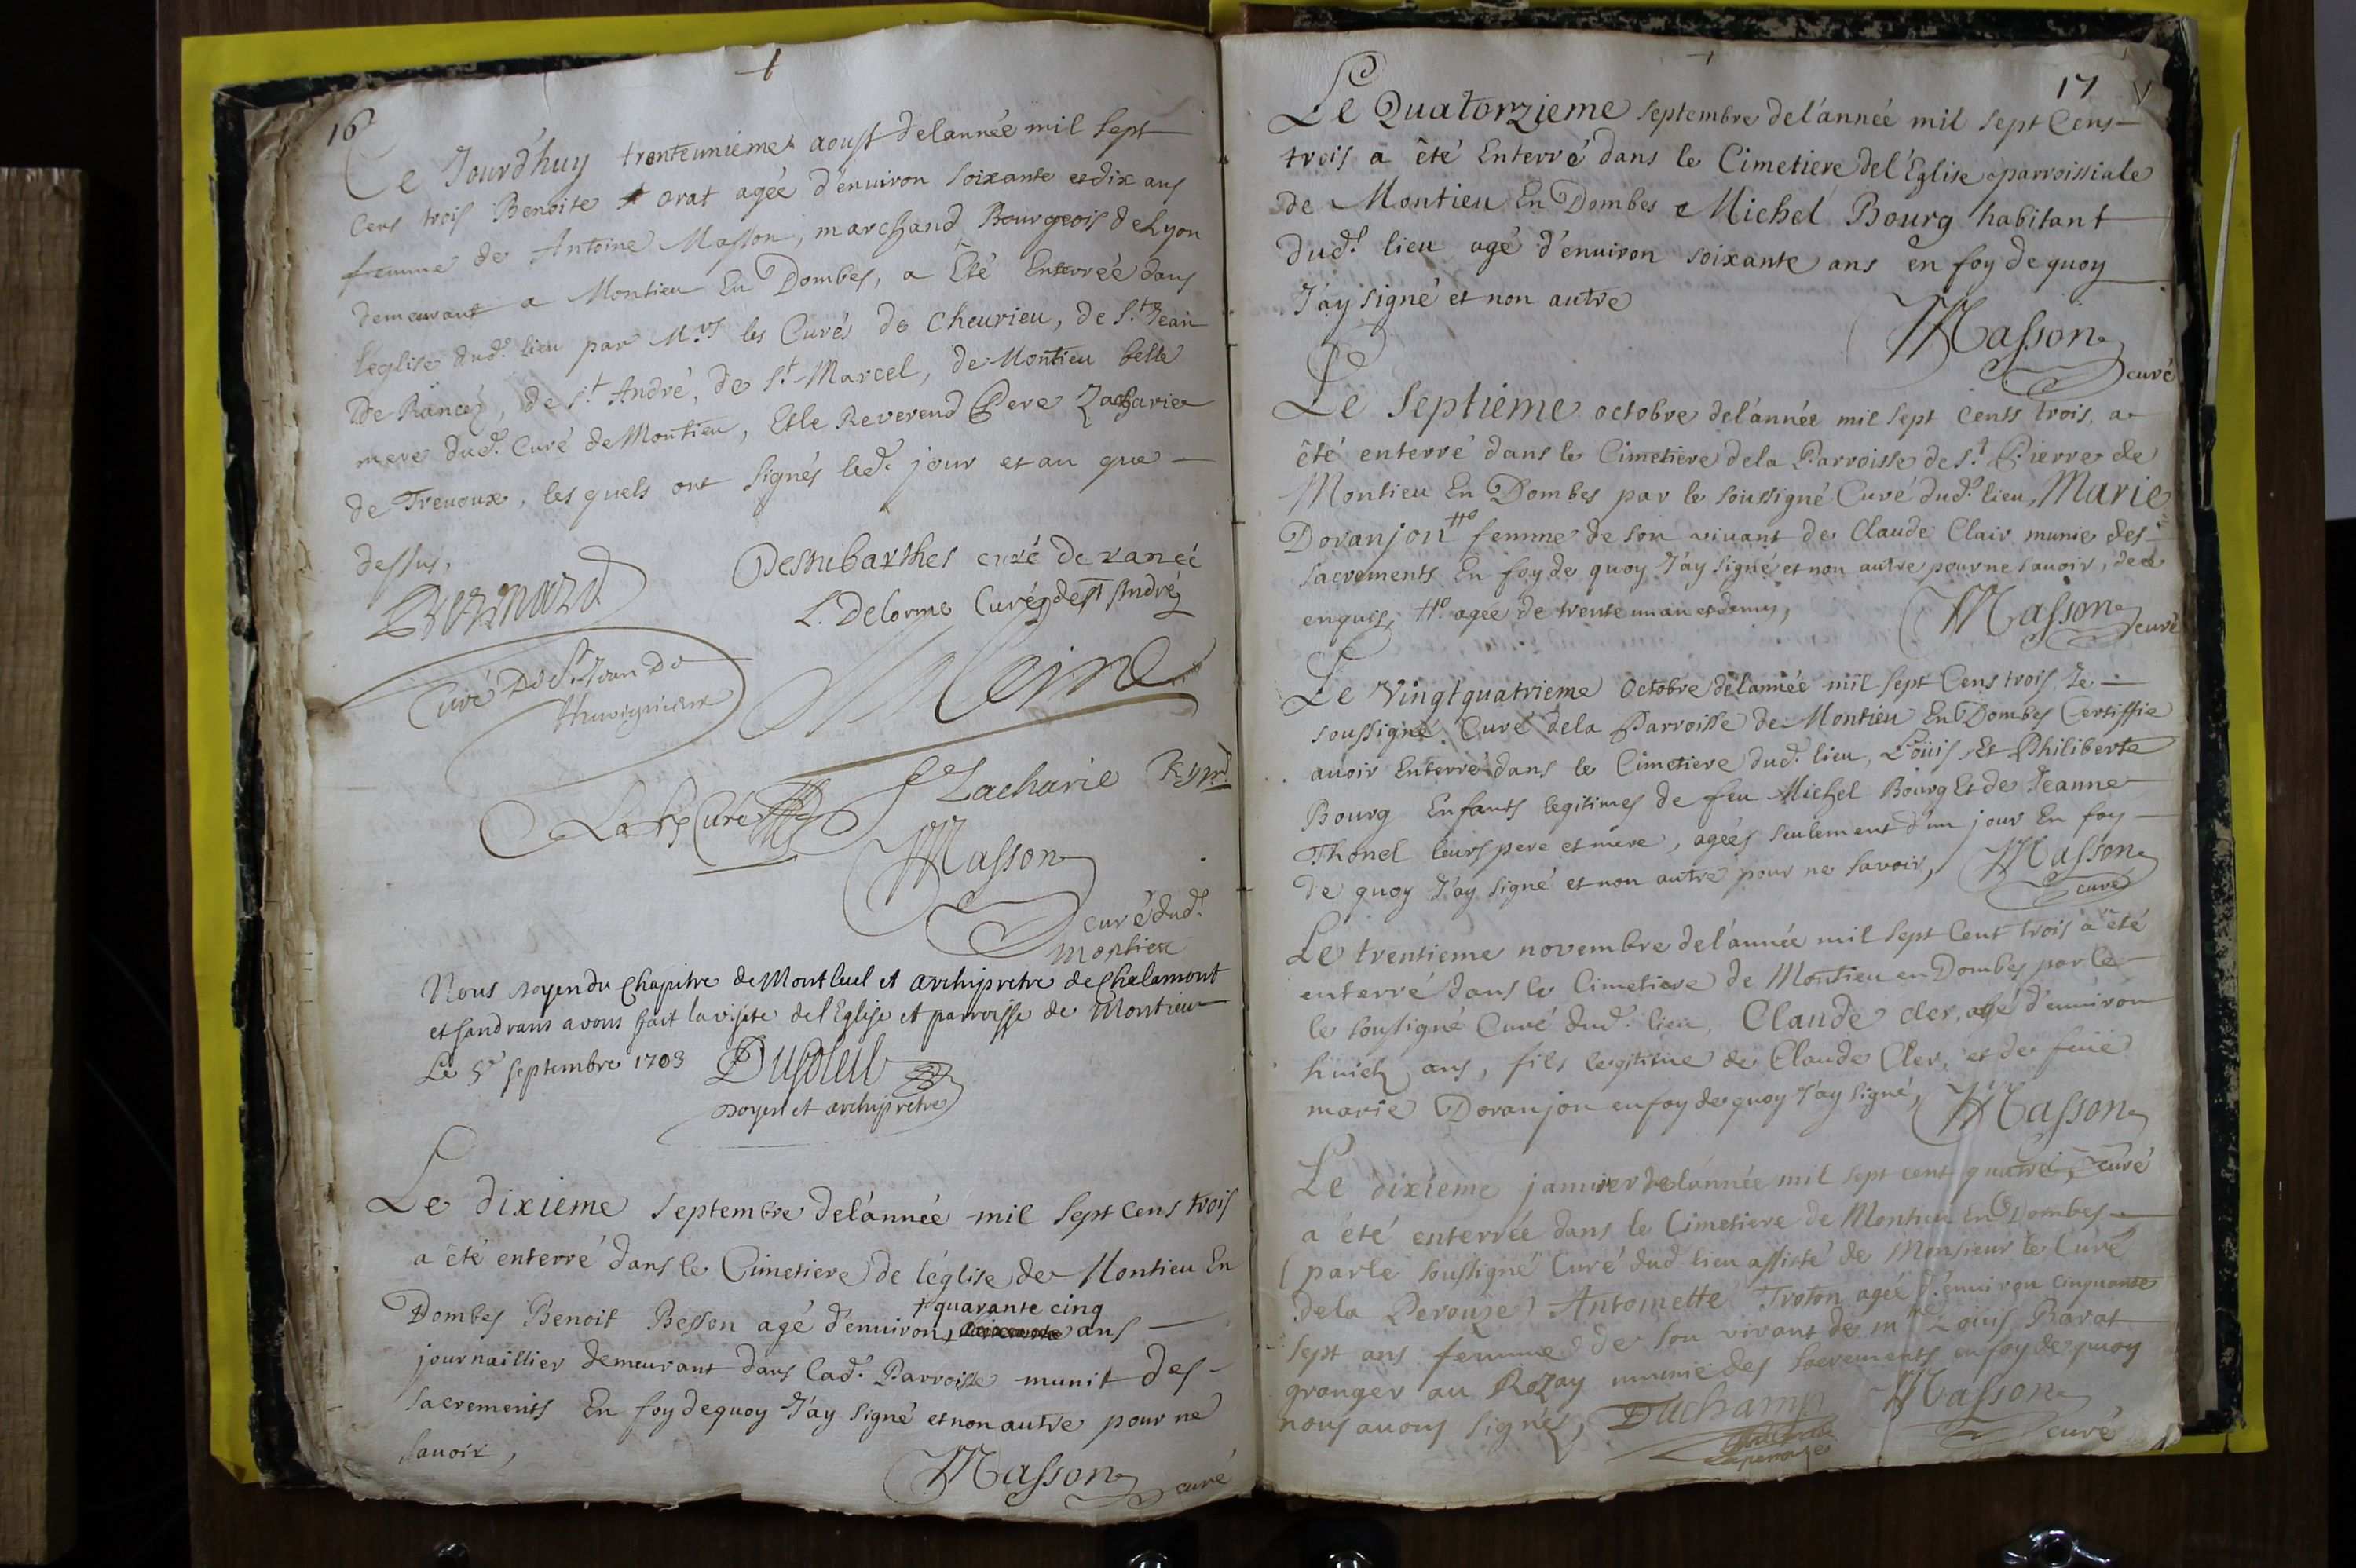 16
Ce Jourd'huy trenteunieme aoust de l'année mil sept
Cens trois Benoite orat agée d'enuiron soixante et dix ans
femme de Antoine Masson, marchand Bourgeois de Lyon
demeurant a Montieu En Dombes, a Eté Enterrée dans
l'eglise dud.t lieu par M.rs les Curés de Cheurieu, de S.t Jean
De Rancé, de S.t André, de S.t Marcel, de Montieu belle
mere dud.t Curé de Montieu, Et le Reverend Pere Zacharie
de Treuoux, les quels ont signés led.t jour et an que
dessus,
Bernard
Destubarthes curé de rancé
L. Delorme Curé de St André
Curé De St Jean De
Thurigneux
Zacharie
Curé
Masson
curé dud.t
Montieu
Nous doyen du Chapitre de Montluel et archipretre de Chalamont
et sandrans avons fait la visite de l'Eglise et parroisse de Montieu
Le 5e septembre 1703 Dusoleil
doyen et archipretre
Le dixieme septembre de l'année mil sept cens trois
a êté enterré dans le Cimetiere de l'église de Montieu En
+ quarante cinq
Dombes Benoit Besson agé d'enuiron + ans
journaillier demeurant dans lad.t Parroisse munit des
sacrements En foy dequoy J'ay signé et non autre pour ne
sauoir,
Masson curé
17
Le Quatorzieme septembre de l'année mil sept Cens
trois a êté Enterré dans le Cimetiere de l'Eglise parroissiale
de Montieu En Dombes Michel Bourg habitant
dud.t lieu agé d'enuiron soixante ans en foy de quoy
J'ay signé et non autre
Masson
curé
Le Septieme octobre de l'année mil sept cents trois, a
êté enterré dans le Cimetiere de la Parroisse de S.t Pierre de
Montieu En Dombes par le soussigné Curé dud.t lieu, Marie
Doranjon # femme de son viuant de Claude Clair munie des
sacrements En foy de quoy J'ay signé et non autre pour ne sauoir, de ce
enquis, # agée de trente un an et demy,
Masson
curé
Le Vingtquatrieme Octobre de l'année mil sept Cens trois Je
soussigné Curé de la Parroisse de Montieu En Dombes Certiffie
auoir Enterré dans le Cimetiere dud.t lieu, Loüis Et Philiberte
Bourg Enfants legitimes de feu Michel Bourg Et de Jeanne
Thonel leurs pere et mere, agées seulement d'un jour En foy
de quoy J'ay signé et non autre pour ne savoir, Masson
curé
Le trentieme novembre de l'année mil sept Cent trois a été
enterré dans le Cimetiere de Montieu en Dombes par le
le sousigné Curé dud.t lieu, Claude cler, agé d'enuiron
huict ans, fils legitime de Claude Cler, et de feüe
marie Doranjon en foy de quoy J'ay signé, Masson
curé
Le dixieme januier de l'année mil sept cent quatre,
a été enterrée dans le Cimetiere de Montieu en Dombes
(par le soussigné Curé dud.t lieu assisté de Monsieur le Curé
de la Perouze) Antoinette Troton agée d'enuiron cinquante
sept ans femme de son vivant de m.re Loüis Barat
granger au Rozay munie des sacrements en foy de quoy
nous auons signés, Duchamp Masson
curé de
Laperouze
curé